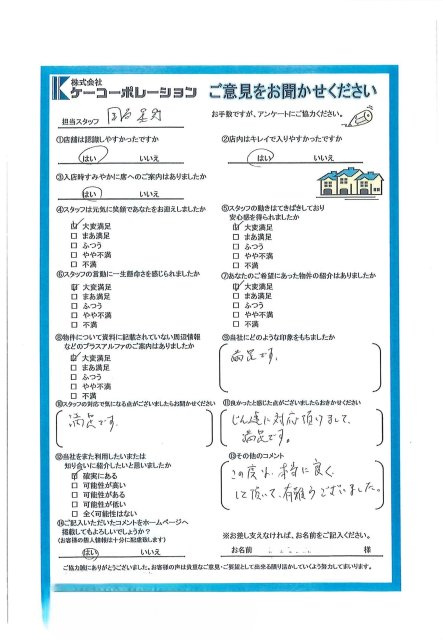 株式会社
ケーコーポレーション
ご意見をお聞かせください
担当スタッフ
お手数ですが、アンケートにご協力ください。
①店舗は認識しやすかったですか
はい いいえ
②店内はキレイで入りやすかったですか
はい いいえ
③入店時すみやかに席へのご案内はありましたか
はい いいえ
④スタッフは元気に笑顔であなたをお迎えしましたか
大変満足
まあ満足
ふつう
やや不満
不満
⑤スタッフの動きはてきぱきしており
安心感を得られましたか
大変満足
まあ満足
ふつう
やや不満
不満
⑥スタッフの言動に一生懸命さを感じられましたか
大変満足
まあ満足
ふつう
やや不満
不満
⑦あなたのご希望にあった物件の紹介はありましたか
大変満足
まあ満足
ふつう
やや不満
不満
⑧物件について資料に記載されていない周辺情報
などのプラスアルファのご案内はありましたか
大変満足
まあ満足
ふつう
やや不満
不満
⑨当社にどのような印象をもちましたか
満足です。
⑩スタッフの対応で気になる点がございましたらお聞かせください
満足です
⑪良かったと感じた点がございましたらおきかせください
じん速に対応頂けまして、
満足です。
⑫当社をまた利用したいまたは
知り合いに紹介したいと思いましたか
確実にある
可能性が高い
可能性がある
可能性が低い
全く可能性はない
⑬その他のコメント
この度は、本当に良く
して頂いて、有難うございました。
⑭ご記入いただいたコメントをホームページへ
掲載してもよろしいでしょうか?
(お客様の個人情報は十分に配慮致します)
はい いいえ
※お差し支えなければ、お名前をご記入ください。
お名前 様
ご協力誠にありがとうございました。お客様の声は貴重なご意見・ご要望として出来る限り活かしていくよう努力してまいります。